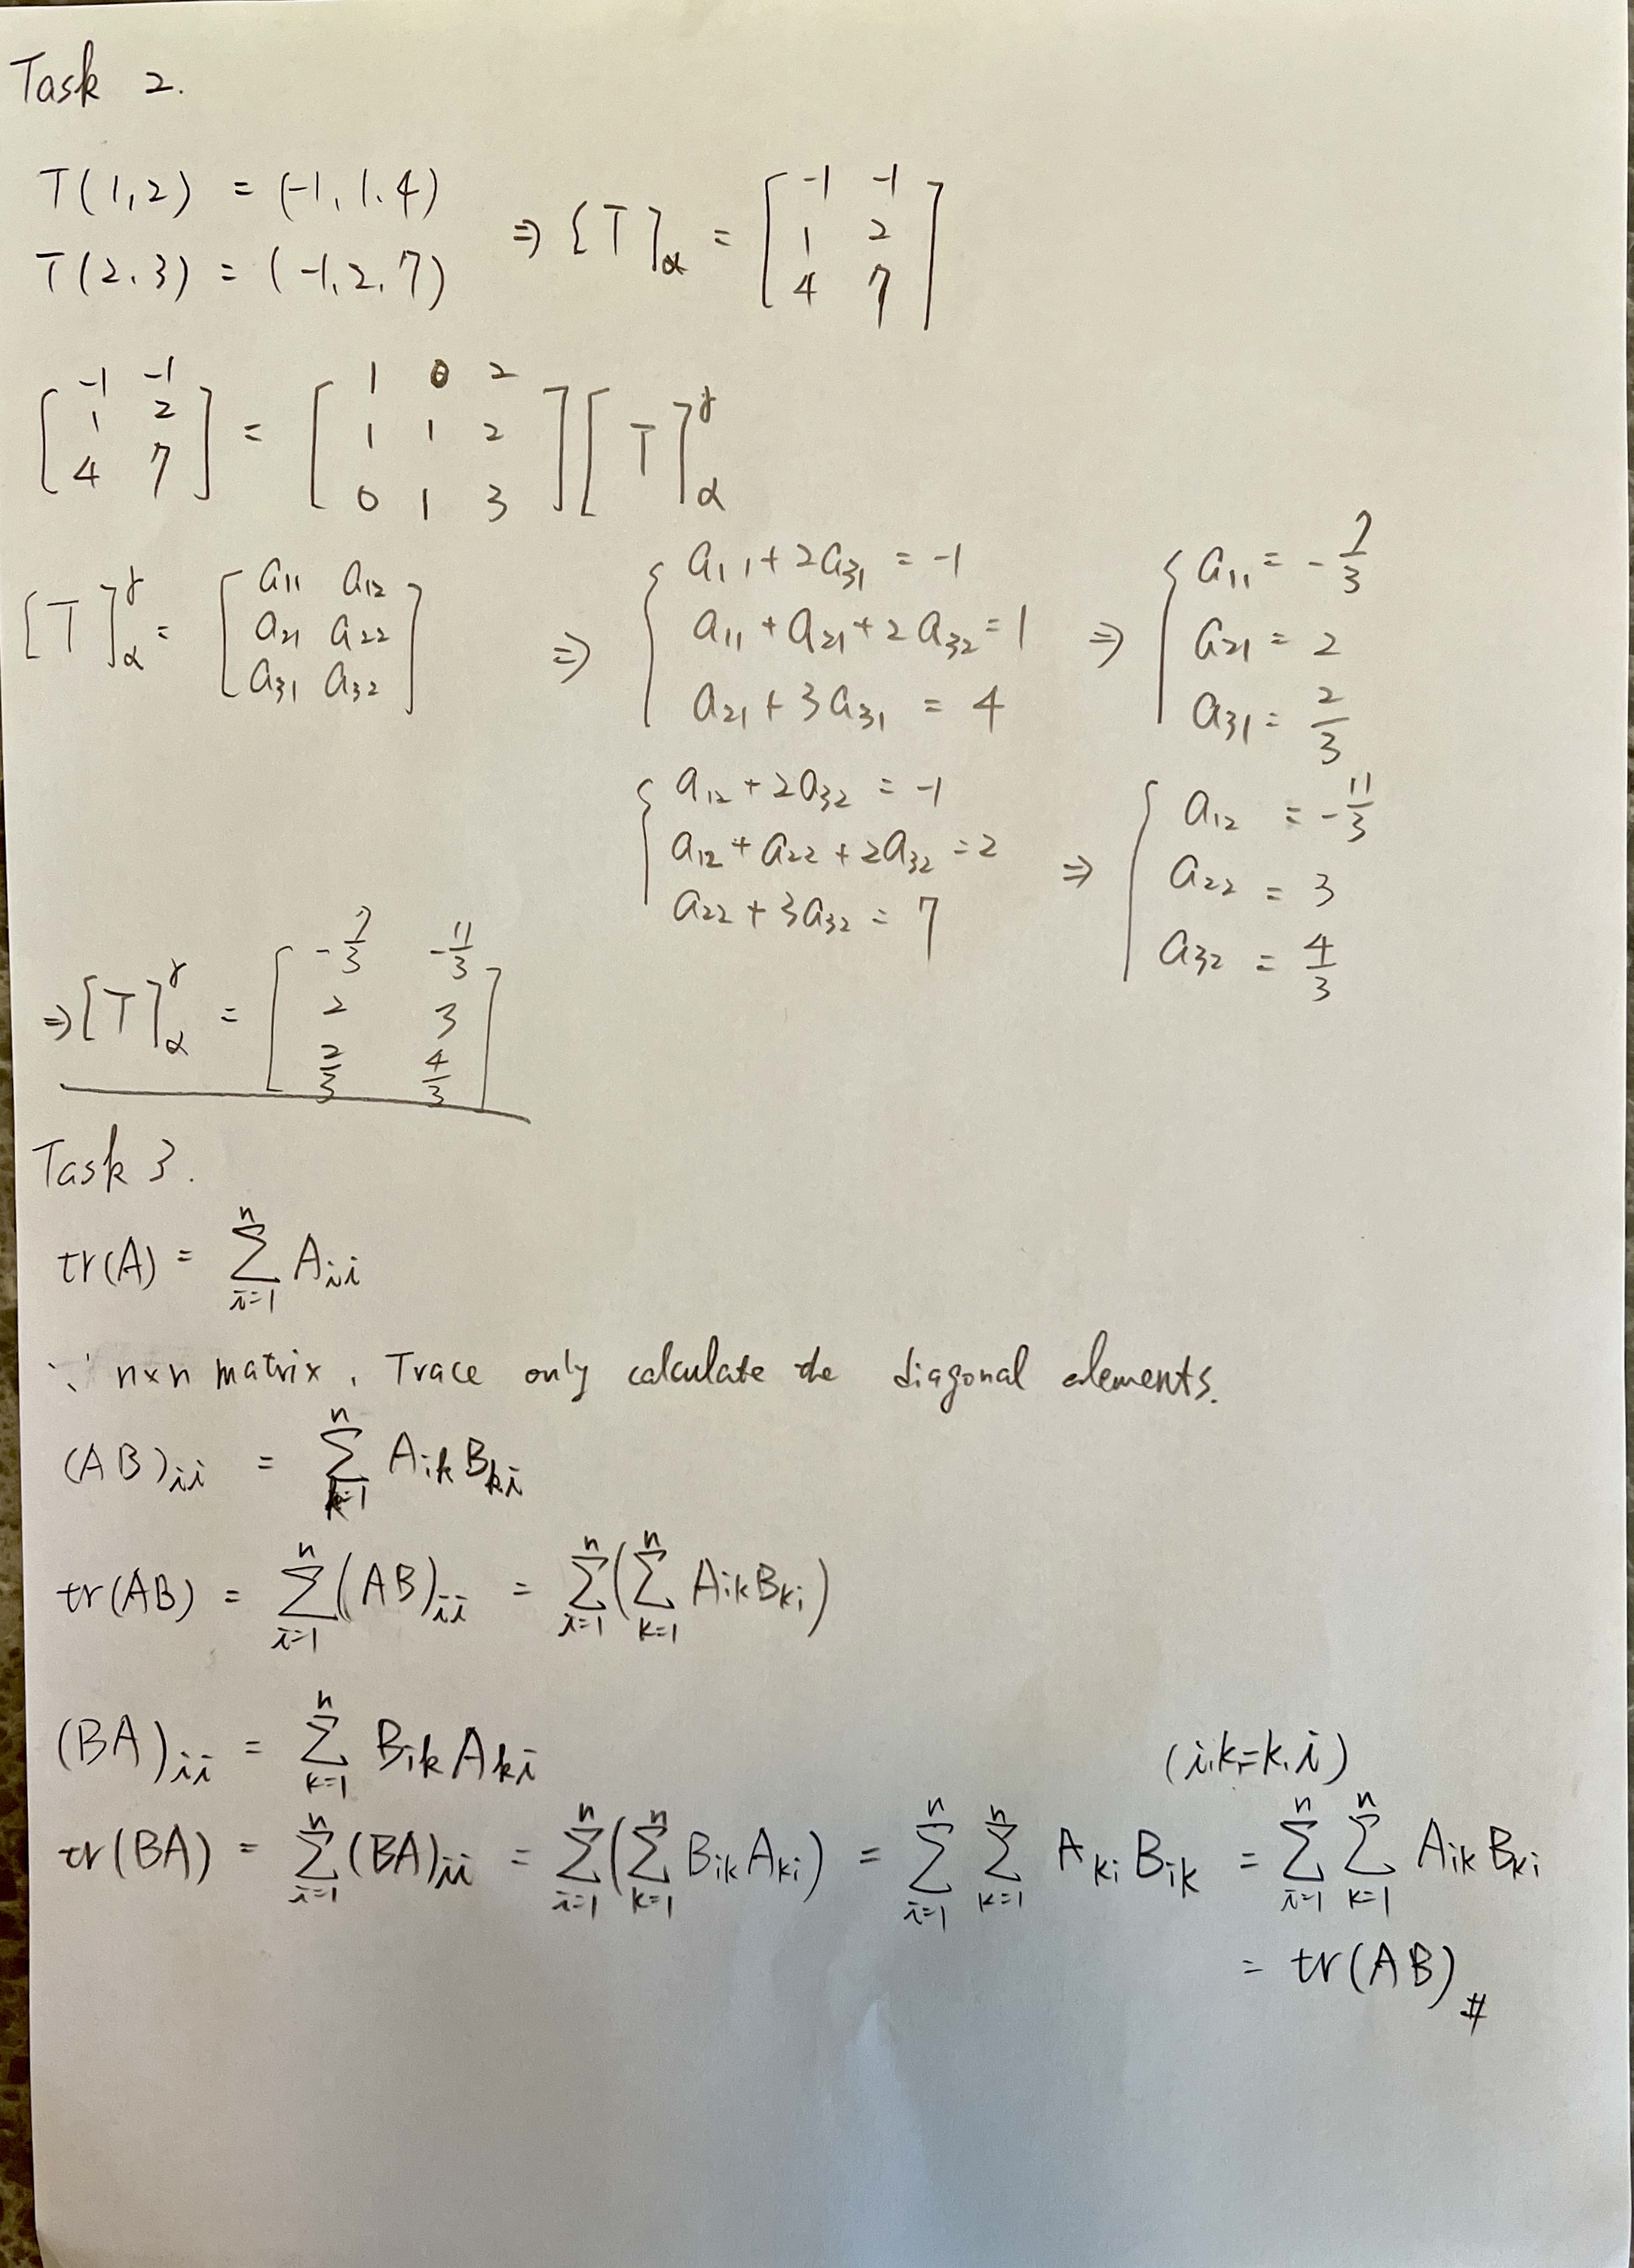 Task 2.
T(1,2) = (-1, 1, 4)
T(2,3) = (-1, 2, 7)
⇒ [T]_α = [ -1 -1 ; 1 2 ; 4 7 ]
[ -1 -1 ; 1 2 ; 4 7 ] = [ 1 0 2 ; 1 1 2 ; 0 1 3 ] [T]_α^γ
[T]_α^γ = [ a11 a12 ; a21 a22 ; a31 a32 ]
⇒ { a11 + 2a31 = -1
a11 + a21 + 2a32 = 1
a21 + 3a31 = 4
⇒ { a11 = -7/3
a21 = 2
a31 = 2/3
{ a12 + 2a32 = -1
a12 + a22 + 2a32 = 2
a22 + 3a32 = 7
⇒ { a12 = -11/3
a22 = 3
a32 = 4/3
⇒ [T]_α^γ = [ -7/3 -11/3 ; 2 3 ; 2/3 4/3 ]
Task 3.
tr(A) = Σ_{i=1}^{n} A_ii
∵ n×n matrix, Trace only calculate the diagonal elements.
(AB)_ii = Σ_{k=1}^{n} A_ik B_ki
tr(AB) = Σ_{i=1}^{n} (AB)_ii = Σ_{i=1}^{n} (Σ_{k=1}^{n} A_ik B_ki)
(BA)_ii = Σ_{k=1}^{n} B_ik A_ki
(i,k=k,i)
tr(BA) = Σ_{i=1}^{n} (BA)_ii = Σ_{i=1}^{n} (Σ_{k=1}^{n} B_ik A_ki) = Σ_{i=1}^{n} Σ_{k=1}^{n} A_ki B_ik = Σ_{i=1}^{n} Σ_{k=1}^{n} A_ik B_ki
= tr(AB) #